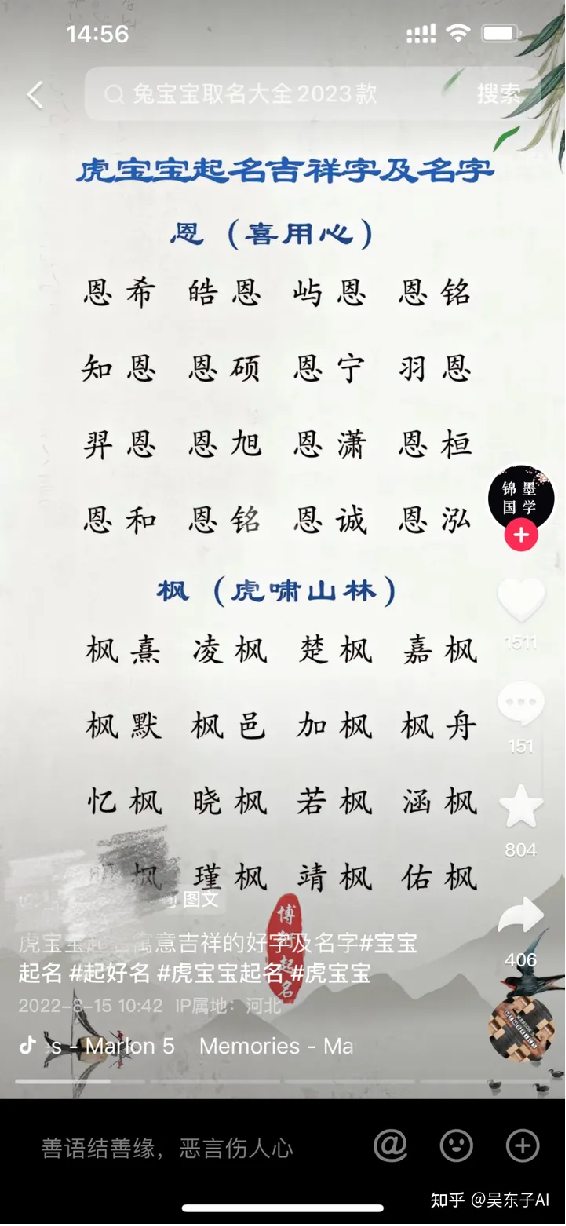 14:56
兔宝宝取名大全2023款 搜索
虎宝宝起名吉祥字及名字
恩（喜用心）
恩希 皓恩 屿恩 恩铭
知恩 恩硕 恩宁 羽恩
羿恩 恩旭 恩潇 恩桓
恩和 恩铭 恩诚 恩泓
锦墨
国学
枫（虎啸山林）
枫熹 凌枫 楚枫 嘉枫
1511
枫默 枫邑 加枫 枫舟
151
忆枫 晓枫 若枫 涵枫
804
枫 瑾枫 靖枫 佑枫
图文
博 起名
406
虎宝宝起名寓意吉祥的好字及名字#宝宝
起名 #起好名 #虎宝宝起名 #虎宝宝
2022-8-15 10:42 IP属地：河北
s - Marlon 5 Memories - Ma
善语结善缘，恶言伤人心
知乎 @吴东子AI